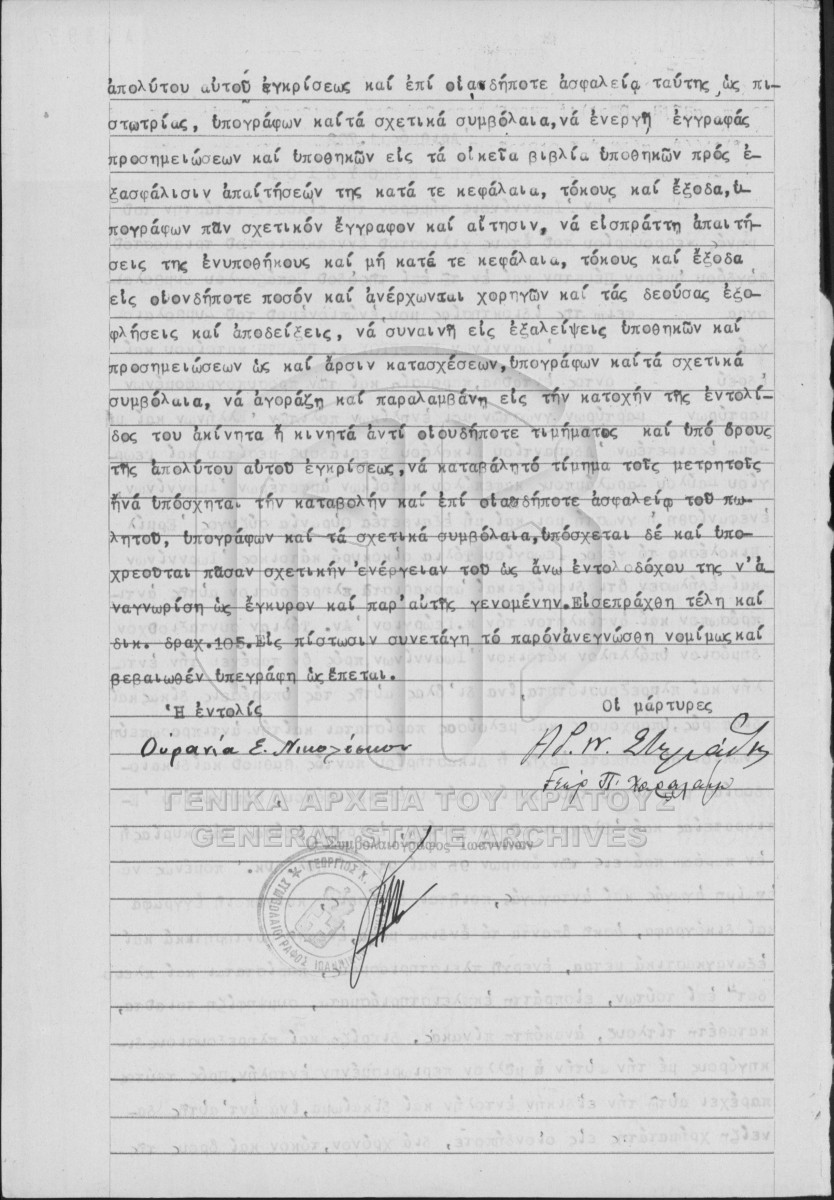 ἀπολύτου αὐτοῦ ἐγκρίσεως καί ἐπί οἱασδήποτε ἀσφαλείᾳ ταύτης ὡς πι-
στωτρίας, ὑπογράφων καίτά σχετικά συμβόλαια,νά ἐνεργῆ ἐγγραφάς
προσημειώσεων καί ὑποθηκῶν εἰς τά οἰκεῖα βιβλία ὑποθηκῶν πρός ἐ-
ξασφάλισιν ἀπαιτήσεών της κατά τε κεφάλαια, τόκους καί ἔξοδα,ὑ-
πογράφων πᾶν σχετικόν ἔγγραφον καί αἴτησιν, νά εἰσπράττη ἀπαιτή-
σεις της ἐνυποθήκους καί μή κατά τε κεφάλαια, τόκους καί ἔξοδα
εἰς οἱονδήποτε ποσόν καί ἀνέρχωνται χορηγῶν καί τάς δεούσας ἐξο-
φλήσεις καί ἀποδείξεις, νά συναινῆ εἰς ἐξαλείψεις ὑποθηκῶν καί
προσημειώσεων ὡς καί ἄρσιν κατασχέσεων,ὑπογράφων καίτά σχετικά
συμβόλαια, νά ἀγοράζη καί παραλαμβάνη εἰς τήν κατοχήν τῆς ἐντολί-
δος του ἀκίνητα ἤ κινητά ἀντί οἱουδήποτε τιμήματος καί ὑπό ὅρους
τῆς ἀπολύτου αὐτοῦ ἐγκρίσεως,νά καταβάλητό τίμημα τοῖς μετρητοῖς
ἤνά ὑπόσχηται τήν καταβολήν καί ἐπί οἱασδήποτε ἀσφαλείᾳ τοῦ πω-
λητοῦ, ὑπογράφων καί τά σχετικά συμβόλαια,ὑπόσχεται δέ καί ὑπο-
χρεοῦται πᾶσαν σχετικήν ἐνέργειαν τοῦ ὡς ἄνω ἐντολοδόχου της ν'ἀ-
ναγνωρίση ὡς ἔγκυρον καί παρ'αὐτῆς γενομένην.Εἰσεπράχθη τέλη καί
δικ. δραχ.105.Εἰς πίστωσιν συνετάγη τό παρόνἀνεγνώσθη νομίμως καί
βεβαιωθέν ὑπεγράφη ὡς ἕπεται.
Ἡ ἐντολίς Οἱ μάρτυρες
Ουρανία Ε. Νικολέσκου
Γεώρ Π.
ΓΕΝΙΚΑ ΑΡΧΕΙΑ ΤΟΥ ΚΡΑΤΟΥΣ
GENERAL STATE ARCHIVES
Ὁ Συμβολαιογράφος Ἰωαννίνων
ΓΕΩΡΓΙΟΣ
ΣΥΜΒΟΛΑΙΟΓΡΑΦΟΣ ΙΩΑΝΝΙΝΩΝ